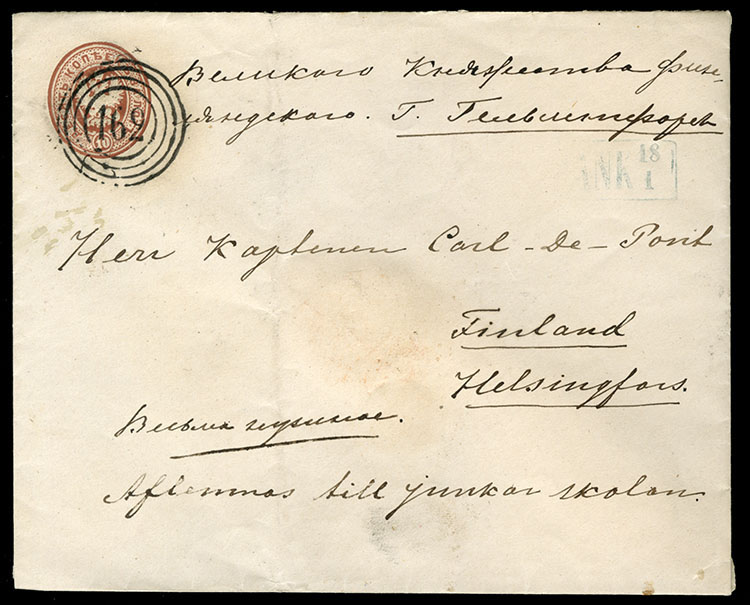 169
Великого Княжества Фин-
ляндского. Г. Гельсингфорсъ
ANK 18
1
Herr Kaptenen Carl-De-Pont
Finland
Helsingfors.
Весьма нужное.
Aflemnas till junkar skolan.